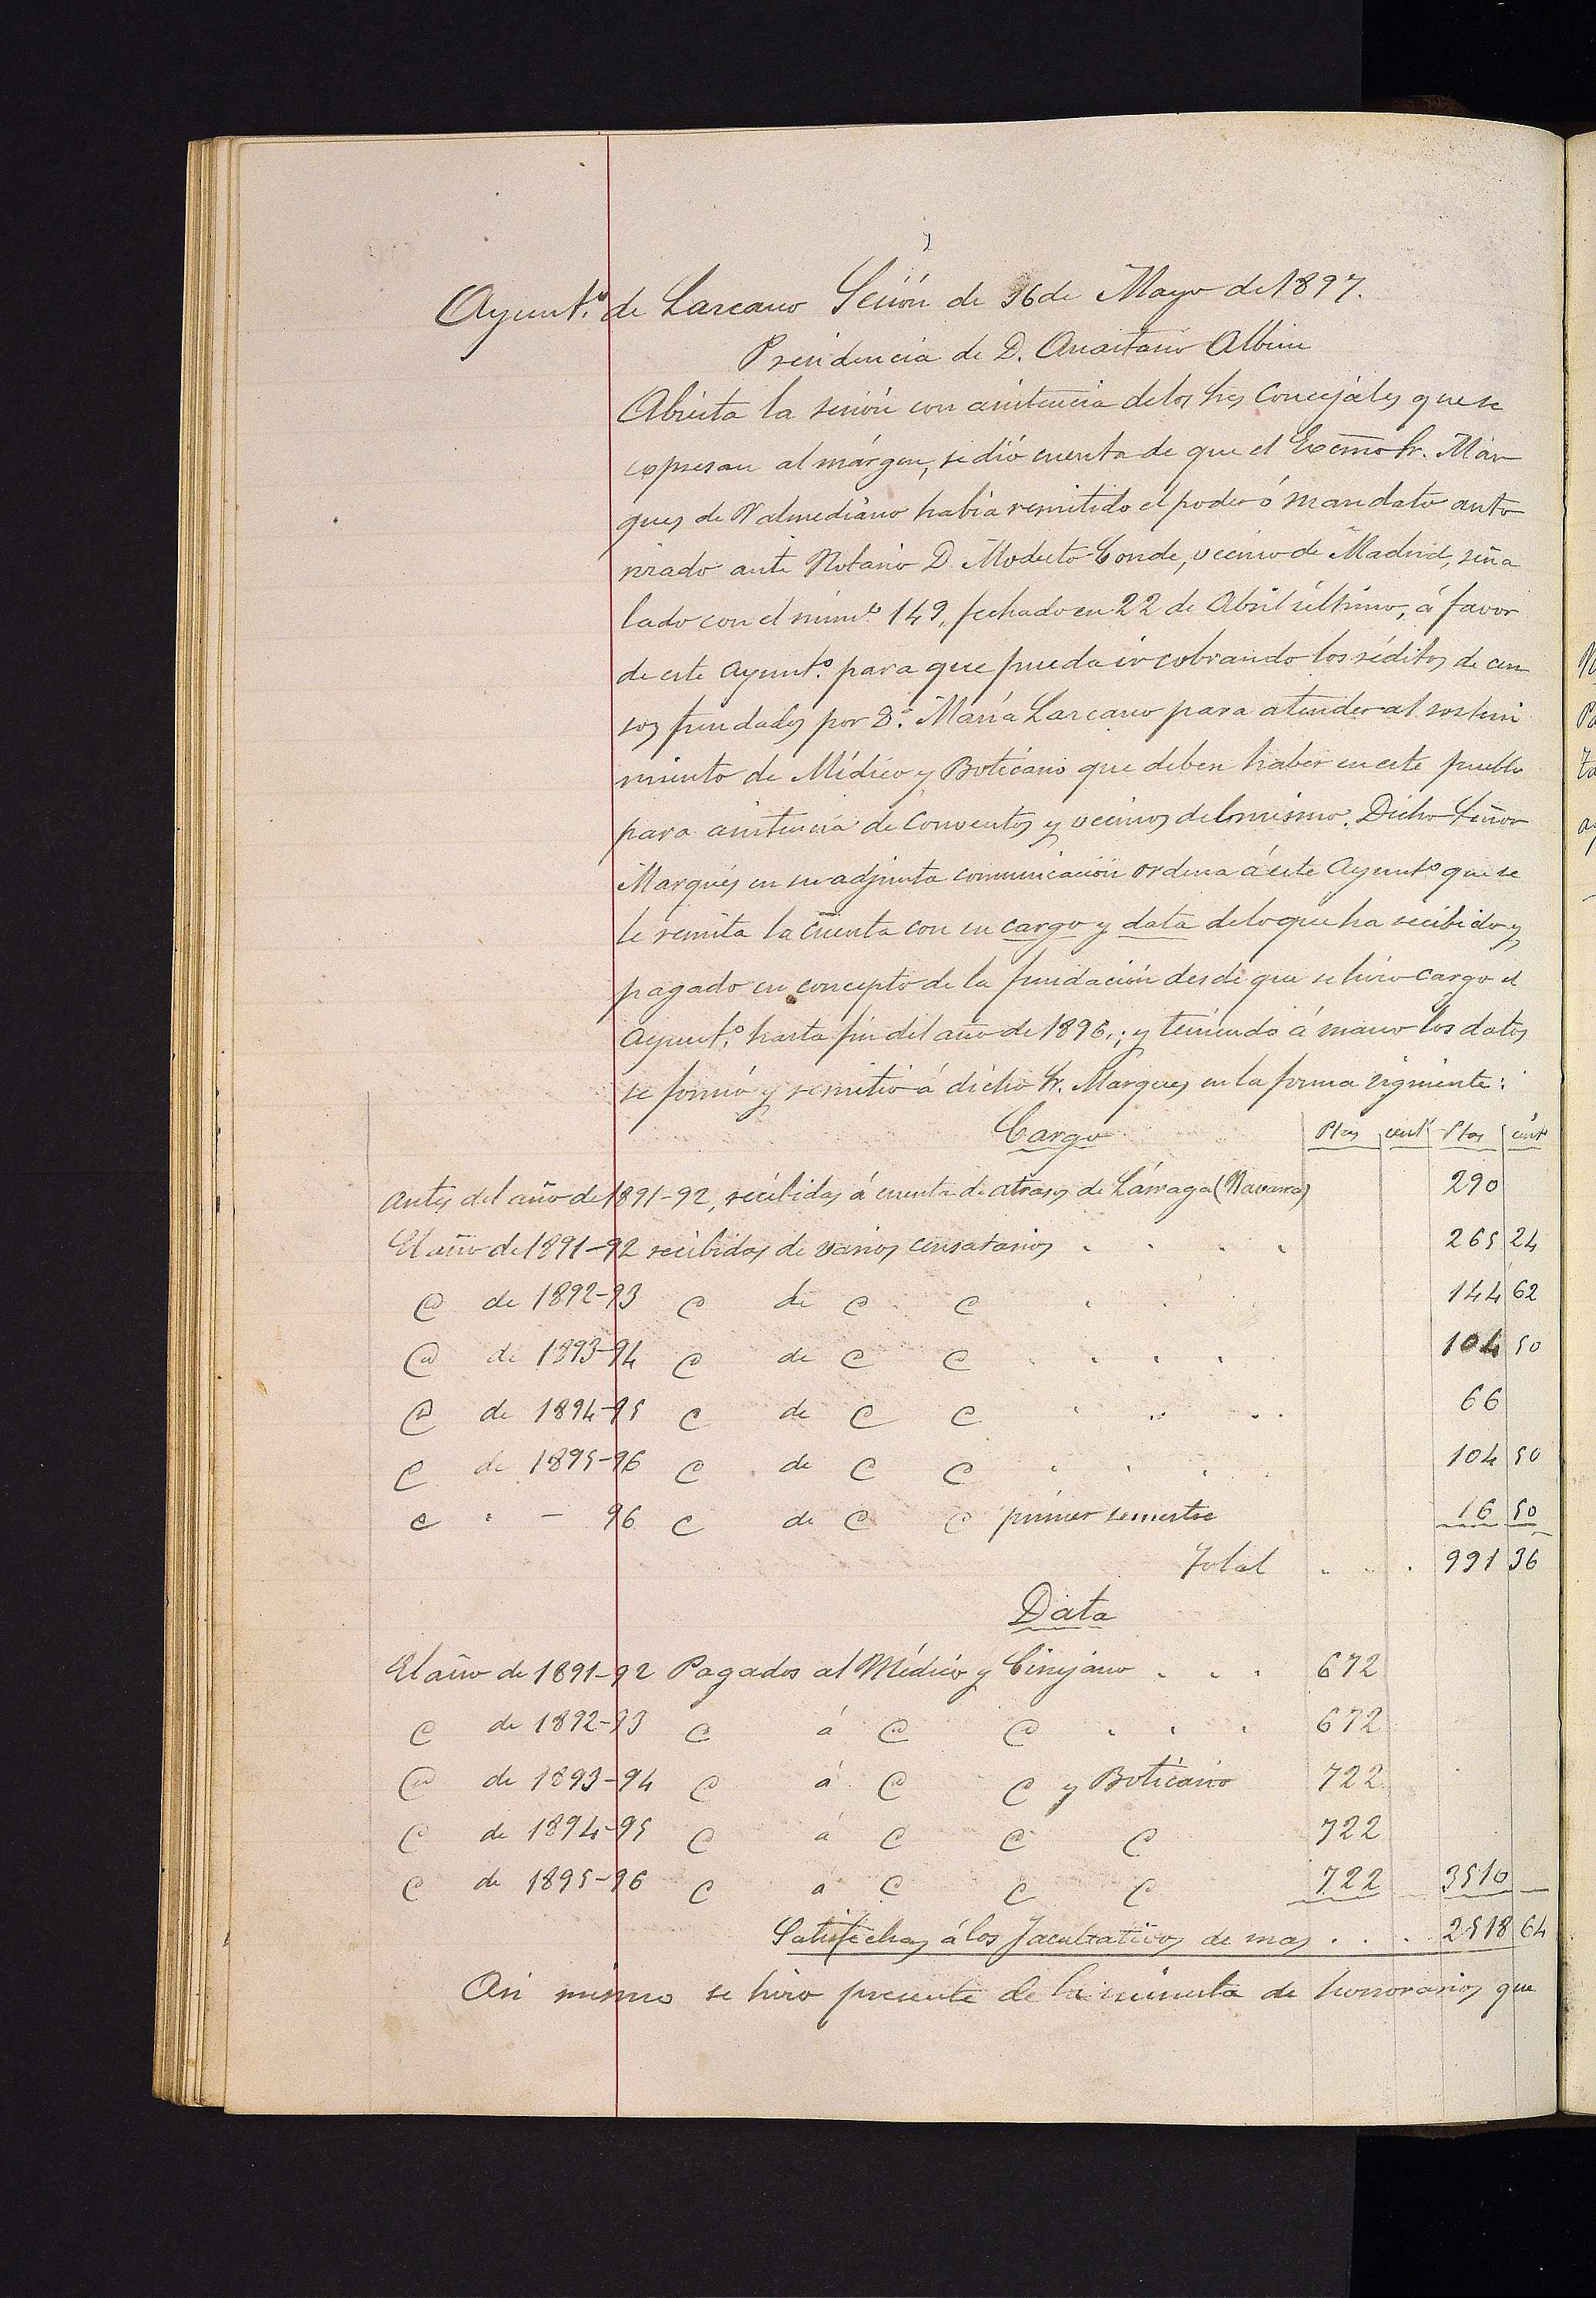 Ayunt.º de Lazcano Sesión de 16 de Mayo de 1897.
Presidencia de D. Anastasio Albisu
Abierta la sesión con asistencia de los Sres Concejales que se
expresan al márgen, se dió cuenta de que el Excmo Sr. Már
ques de Valmediano había remitido el poder ó mandato auto
rizado ante Notario D. Modesto Conde, vecino de Madrid, seña
lado con el núm.º 149, fechado en 22 de Abril último, á favor
de este Ayunt.º para que pueda ir cobrando los réditos de cen
sos fundados por D.ª María Lazcano para atender al sosteni
miento de Médico y Boticario que deben haber en este pueblo
para asistencia de Conventos y vecinos del mismo. Dicho Señor
Marqués en su adjunta comunicación ordena á este Ayunt.º que se
le remita la cuenta con su cargo y data de lo que ha recibido y
pagado en concepto de la fundación desde que se hizo cargo el
Ayunt.º hasta fin del año de 1896,; y teniendo á mano los datos
se formó y remitió á dicho Sr. Marques en la forma siguiente:
Cargo Ptas cent Ptas cent
Antes del año de 1891-92, recibidas á cuenta de atrasos de Lárraga (Navarra) 290
El año de 1891-92 recibidas de varios censatarios . . . . 265 24
@ de 1892-93 @ de @ @ . . 144 62
@ de 1893-94 @ de @ @ . . . . 104 50
@ de 1894-95 @ de @ @ . . . 66
@ de 1895-96 @ de @ @ . . . 104 50
@ " - 96 @ de @ @ primer semestre 16 50
Total . . . 991 36
Data
El año de 1891-92 Pagados al Médico y Cirujano . . . 672
@ de 1892-93 @ á @ @ . . . 672
@ de 1893-94 @ á @ @ y Boticario 722
@ de 1894-95 @ á @ @ @ 722
@ de 1895-96 @ á @ @ @ 722 3510
Satisfechas á los facultativos de mas . . . 2518 64
Asi mismo se hizo presente de la minuta de honorarios que